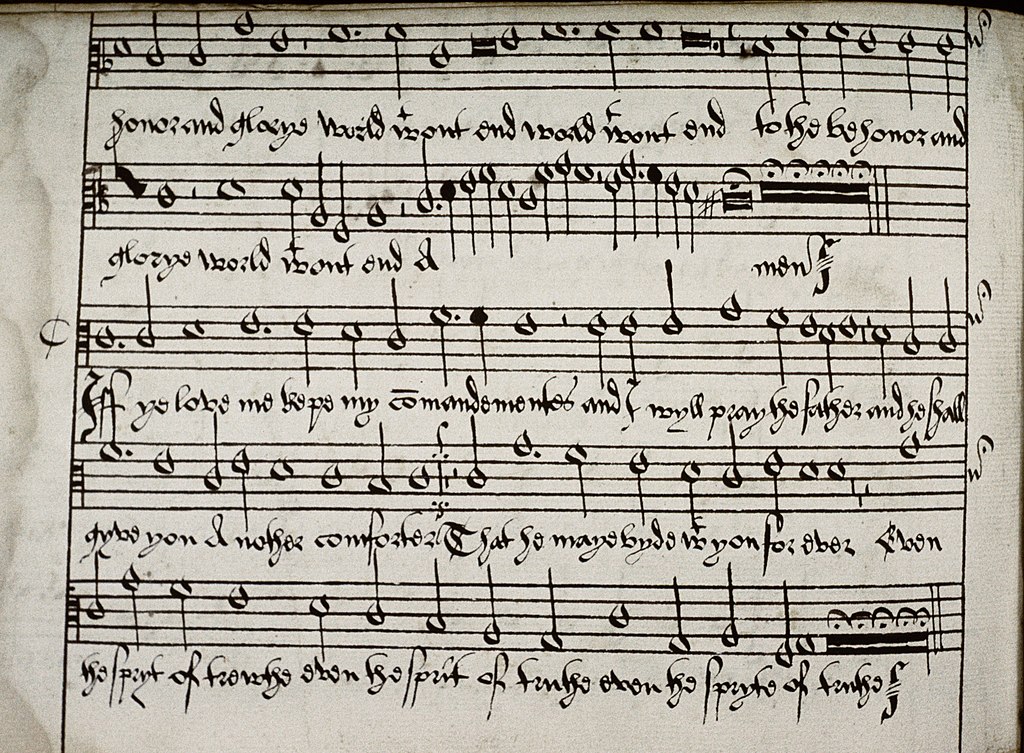 honor and glorye world wͭout end world wͭout end to the be honor and
glorye world wͭout end A men
Iff ye love me kepe my cōmandementes and I wyll pray the father and he shall
gyve you A nother comforter That he maye byde wͭ you for ever Even
the spryt of trewthe even the sprit of truthe even the spryte of truthe